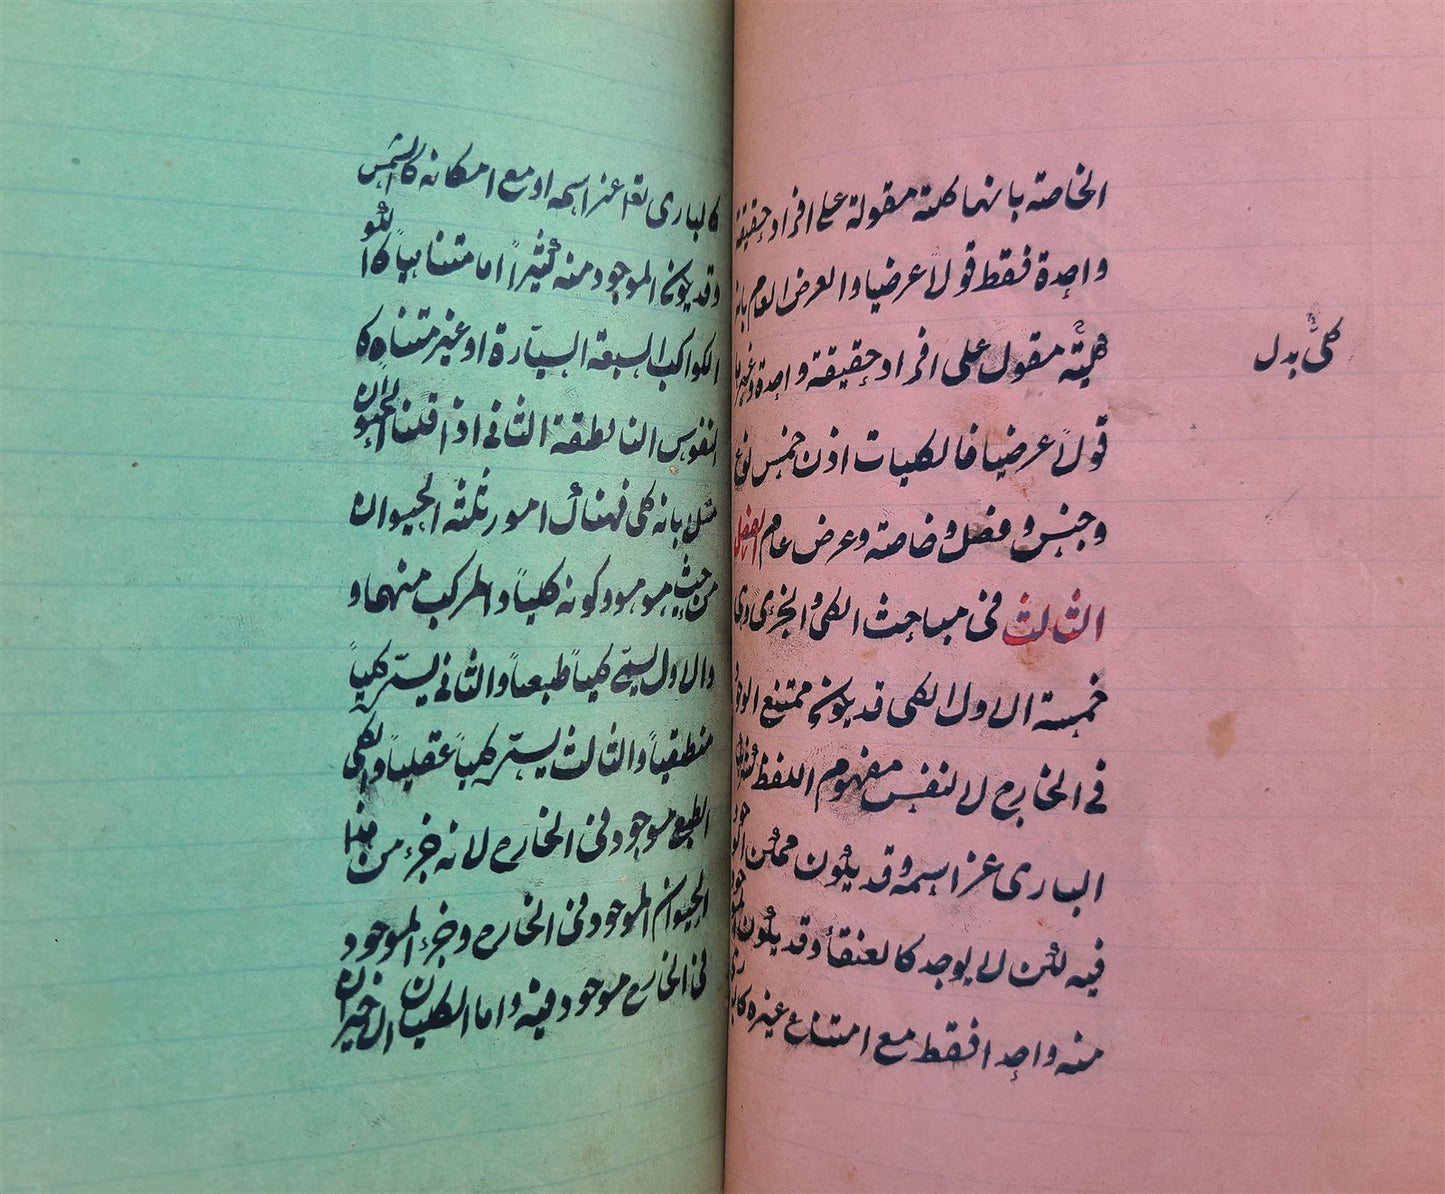 الخاصة بانها كلية مقولة على افراد حقيقة
واحدة فقط قولاً عرضيا والعرض العام بانه
كلية مقول على افراد حقيقة واحدة وغيرها
كلى بدل
قولاً عرضيا فالكليات اذن خمس نوع
وجنس و فصل و خاصة وعرض عام الفصل
الثالث فى مباحث الكلى و الجزئى وهى
خمسة الاول الكلى قد يكون ممتنع الوجود
فى الخارج لا لنفس مفهوم اللفظ كشريك
البارى عز اسمه و قد يكون ممكن الوجود
فيه لكن لا يوجد كالعنقأ وقد يكون الموجود
منه واحدا فقط مع امتناع غيره كالبارى
كالبارى تعا عز اسمه او مع امكانه كالشمس
وقد يكون الموجود منه كثيراً اما متناهياً كا لكو
الكواكب السبعة السيّارة او غير متناه كا
لنفوس الناطقة الثانى اذا قلنا الحيوان
مثلا بانه كلى فهناك امور ثلثة الحيوان
من حيث هو هو وكونه كلياً والمركب منهما و
والاول يسمّى كلياً طبعياً والثانى يسمّى كلياً
منطقياً والثالث يسمّى كلياً عقلياً والكلى
الطبعى موجود فى الخارج لانه جزء من هذا
الحيوان الموجود فى الخارج وجزء الموجود
فى الخارج موجود فيه واما الكليان الاخيران